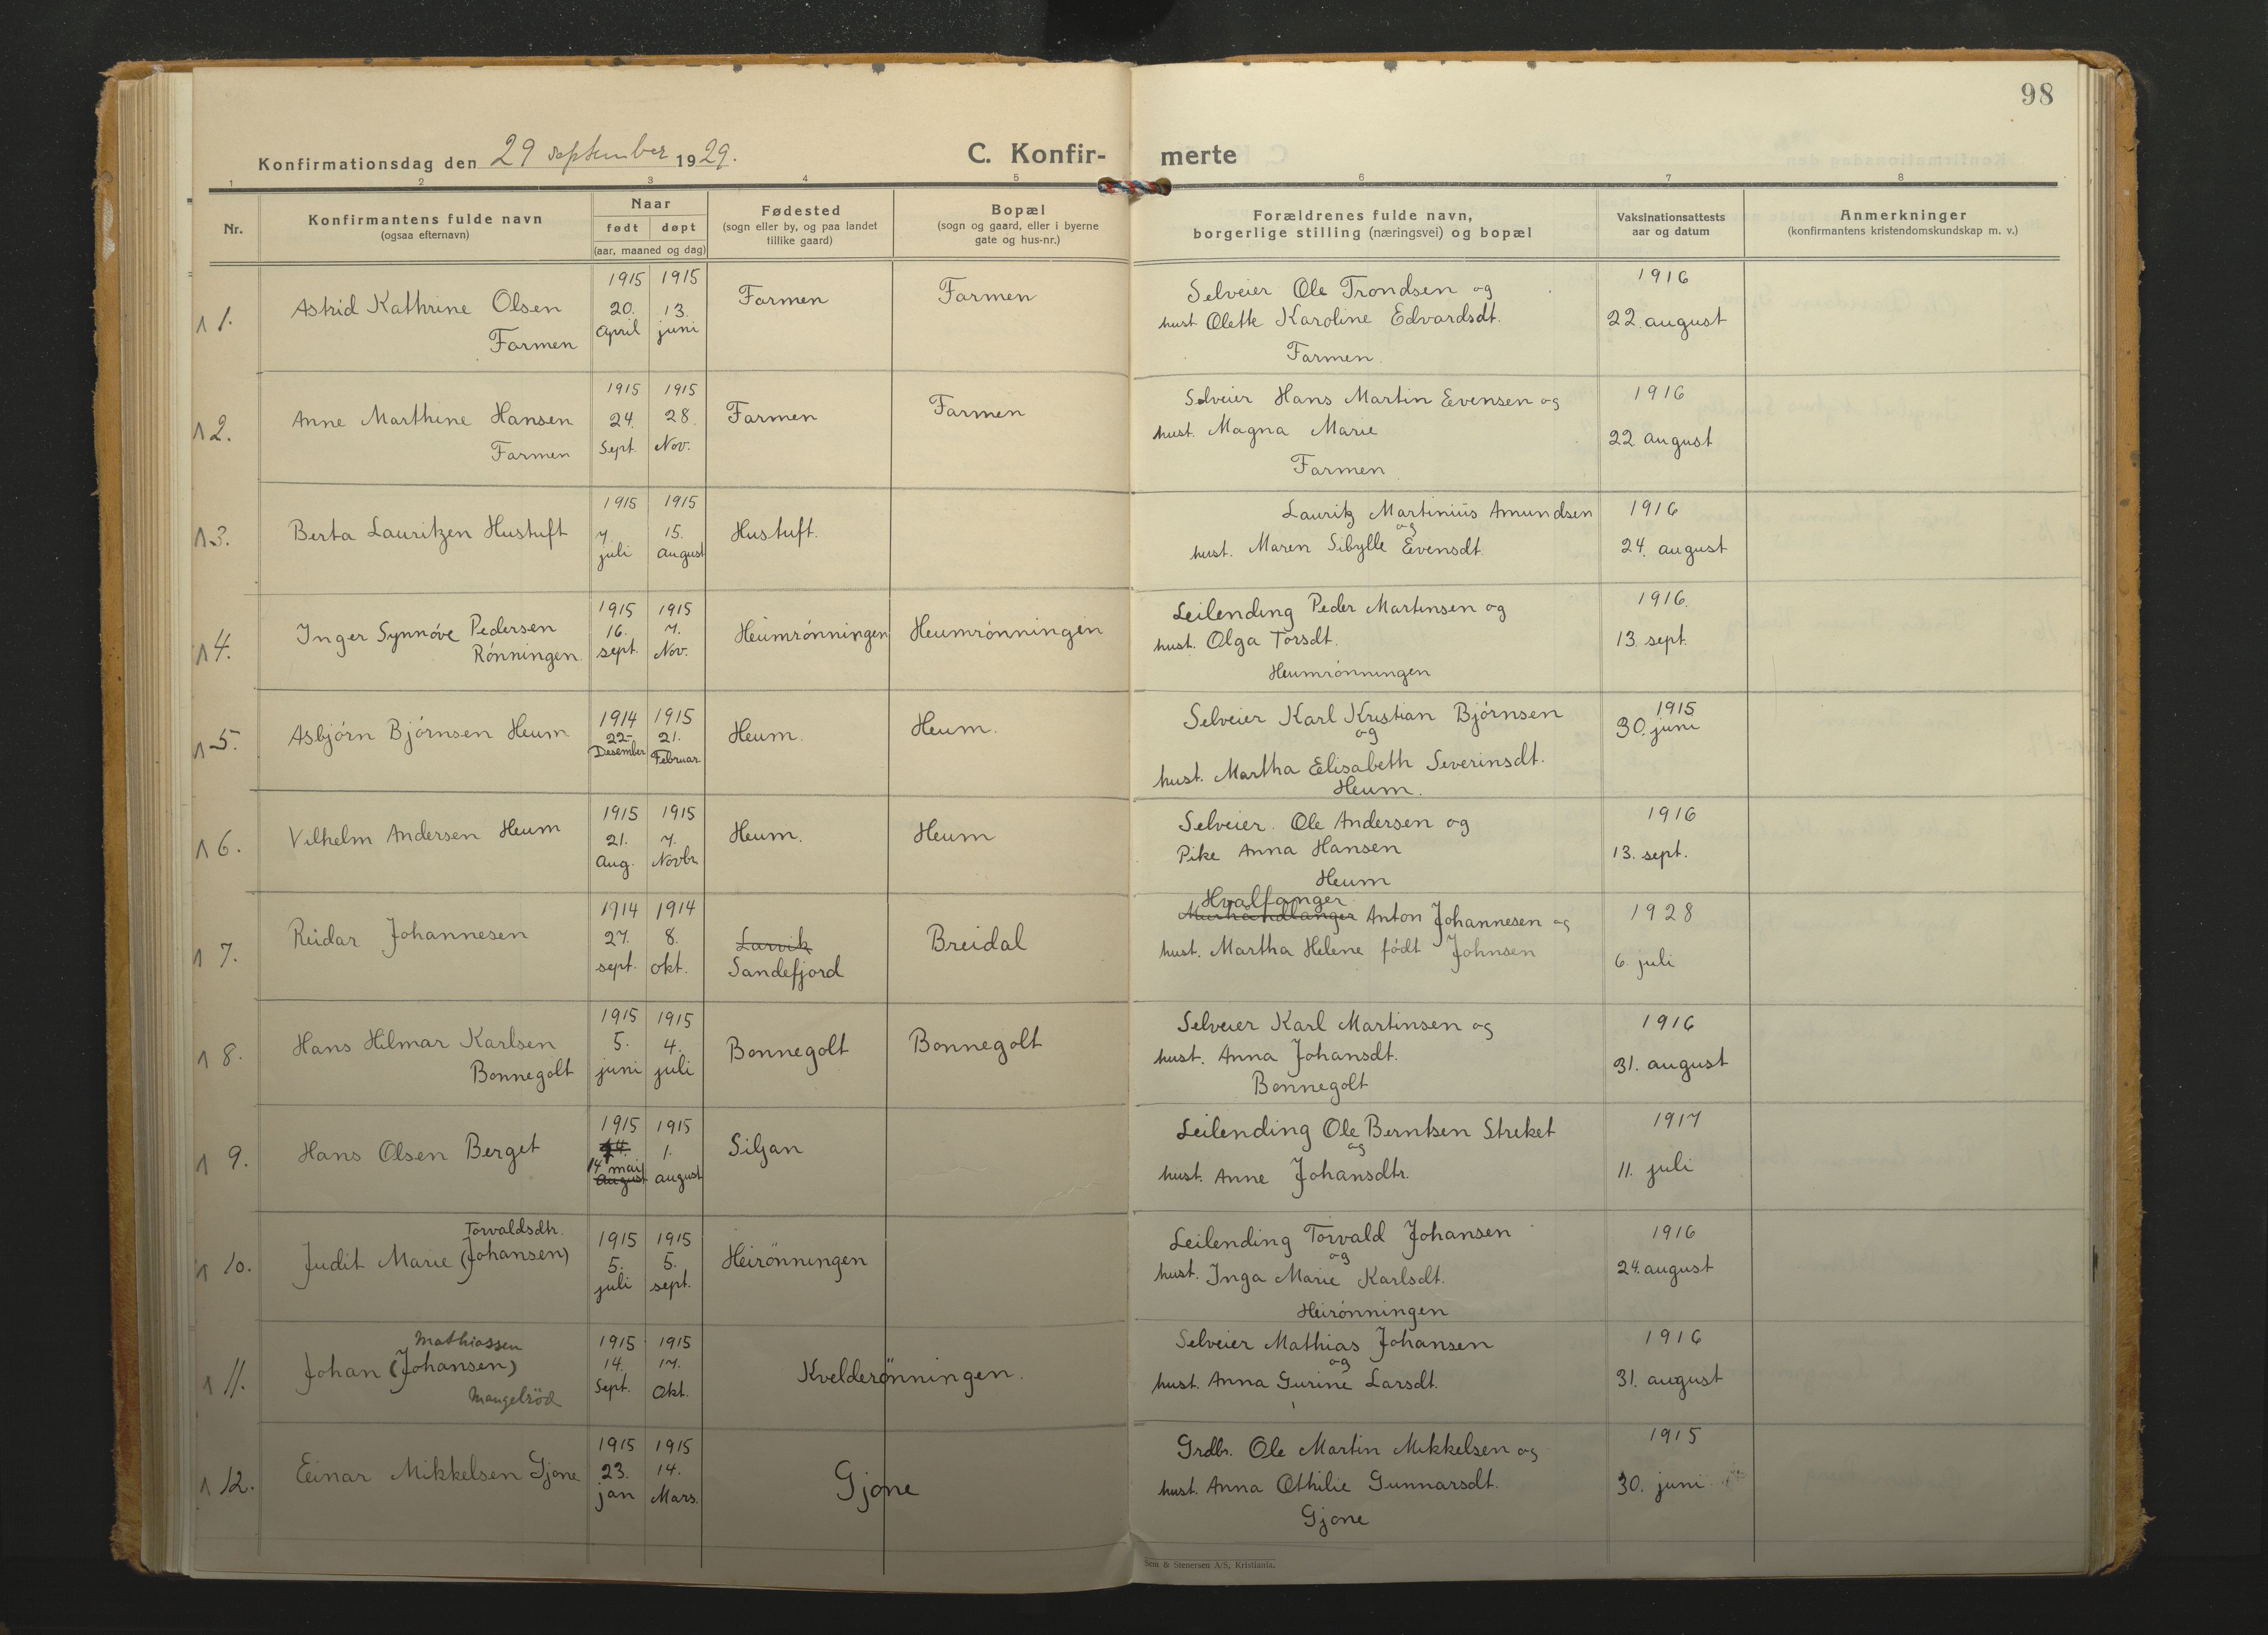 98
Konfirmationsdag den 29 september 1929.
C. Konfir- merte
1 2 3 4 5 6 7 8
Nr.
Konfirmantens fulde navn
(ogsaa efternavn)
Naar
født døpt
(aar, maaned og dag)
Fødested
(sogn eller by, og paa landet
tillike gaard)
Bopæl
(sogn og gaard, eller i byerne
gate og hus-nr.)
Forældrenes fulde navn,
borgerlige stilling (næringsvei) og bopæl
Vaksinationsattests
aar og datum
Anmerkninger
(konfirmantens kristendomskundskap m. v.)
1.
Astrid Kathrine Olsen
Farmen
1915
20.
April
1915
13.
juni
Farmen
Farmen
Selveier Ole Trondsen og
hust Olette Karoline Edvardsdt.
Farmen.
1916
22. august
2.
Anne Marthine Hansen
Farmen
1915
24.
Sept.
1915
28.
Nov.
Farmen
Farmen
Selveier Hans Martin Evensen og
hust. Magna Marie
Farmen
1916
22 august
3.
Berta Lauritzen Hustuft
1915
7.
juli
1915
15.
august
Hustuft.
Lauritz Martinius Amundsen
og
hust. Maren Sibylle Evensdt.
1916
24. august
4.
Inger Synnóve Pedersen
Rónningen.
1915
16.
sept.
1915
7.
Nov.
Heumrónningen
Heumrónningen
Leilending Peder Martinsen og
hust. Olga Torsdt.
Heumrónningen
1916.
13. sept.
5.
Asbjórn Bjórnsen Heum
1914
22-
Desember
1915
21.
Februar
Heum.
Heum.
Selveier Karl Kristian Bjórnsen
og
hust. Martha Elisabeth Severinsdt.
Heum.
1915
30. juni
6.
Vilhelm Andersen Heum
1915
21.
Aug.
1915
7.
Novbr.
Heum.
Heum
Selveier. Ole Andersen og
Pike Anna Hansen
Heum
1916
13. sept.
7.
Reidar Johannesen
1914
27.
sept.
1914
8.
okt.
Larvik
Sandefjord
Breidal
Hvalfanger
Murhåndlanger Anton Johannesen og
hust. Martha Helene fódt Johnsen
1928
6. juli
8.
Hans Hilmar Karlsen
Bonnegolt
1915
5.
juni
1915
4.
juli
Bonnegolt
Bonnegolt
Selveier Karl Martinsen og
hust. Anna Johansdt.
Bonnegolt
1916
31. august
9.
Hans Olsen Berget
1915
14 mai
August
1915
1.
august
Siljan
Leilending Ole Berntsen Streket
og
hust. Anne Johansdtr.
1917
11. juli
10.
Torvaldsdtr.
Judit Marie (Johansen)
1915
5.
juli
1915
5.
sept.
Heirönningen
Leilending Torvald Johansen
og
hust. Inga Marie Karlsdt.
Heirónningen
1916
24. august
11.
Mathiassen
Johan (Johansen)
Mangelsöd
1915
14.
Sept.
1915
17.
Okt.
Kvelderönningen.
Selveier Mathias Johansen
og
hust. Anna Gurine Larsdt.
1916
31. august
12.
Einar Mikkelsen Gjone
1915
23.
jan
1915
14.
Mars.
Gjone
Grdbr. Ole Martin Mikkelsen og
hust. Anna Othilie Gunnarsdt.
Gjone
1915
30. juni
Sem & Stenersen A/S, Kristiania.